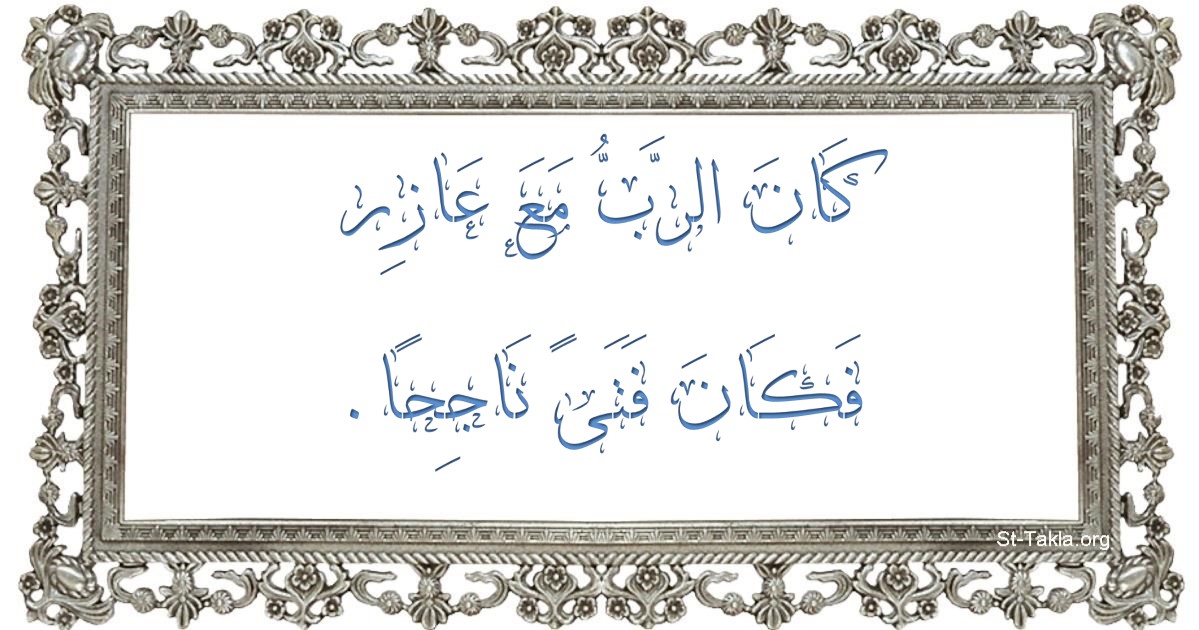 كَانَ الرَّبُّ مَعَ عَازِر
فَكَانَ فَتَىً نَاجِحًا .
St-Takla.org